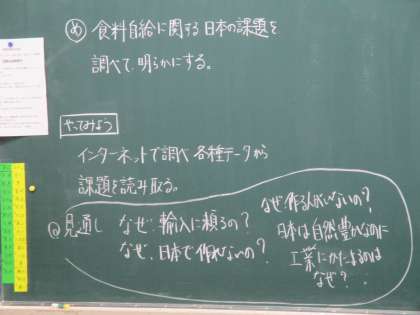 め 食料自給に関する日本の課題を
調べて、明らかにする。
やってみよう
インターネットで調べ 各種データから
課題を読み取る。
見通し なぜ、輸入に頼るの?
なぜ、日本で作れないの?
なぜ作る人がいないの?
日本は自然豊かなのに
工業に
なぜ?